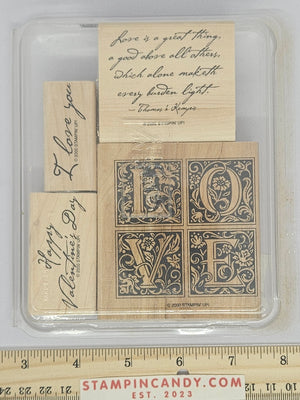 Love is a great thing,
a good above all others,
Which alone maketh
every burden light.
- Thomas à Kempis
© 2000 STAMPIN' UP!
I love you
© 2000 STAMPIN' UP!
Happy
Valentine's Day
© 2000 STAMPIN' UP!
LO
VE
© 2000 STAMPIN' UP!
3 4 5 6 7 8
STAMPINCANDY.COM
EST. 2023